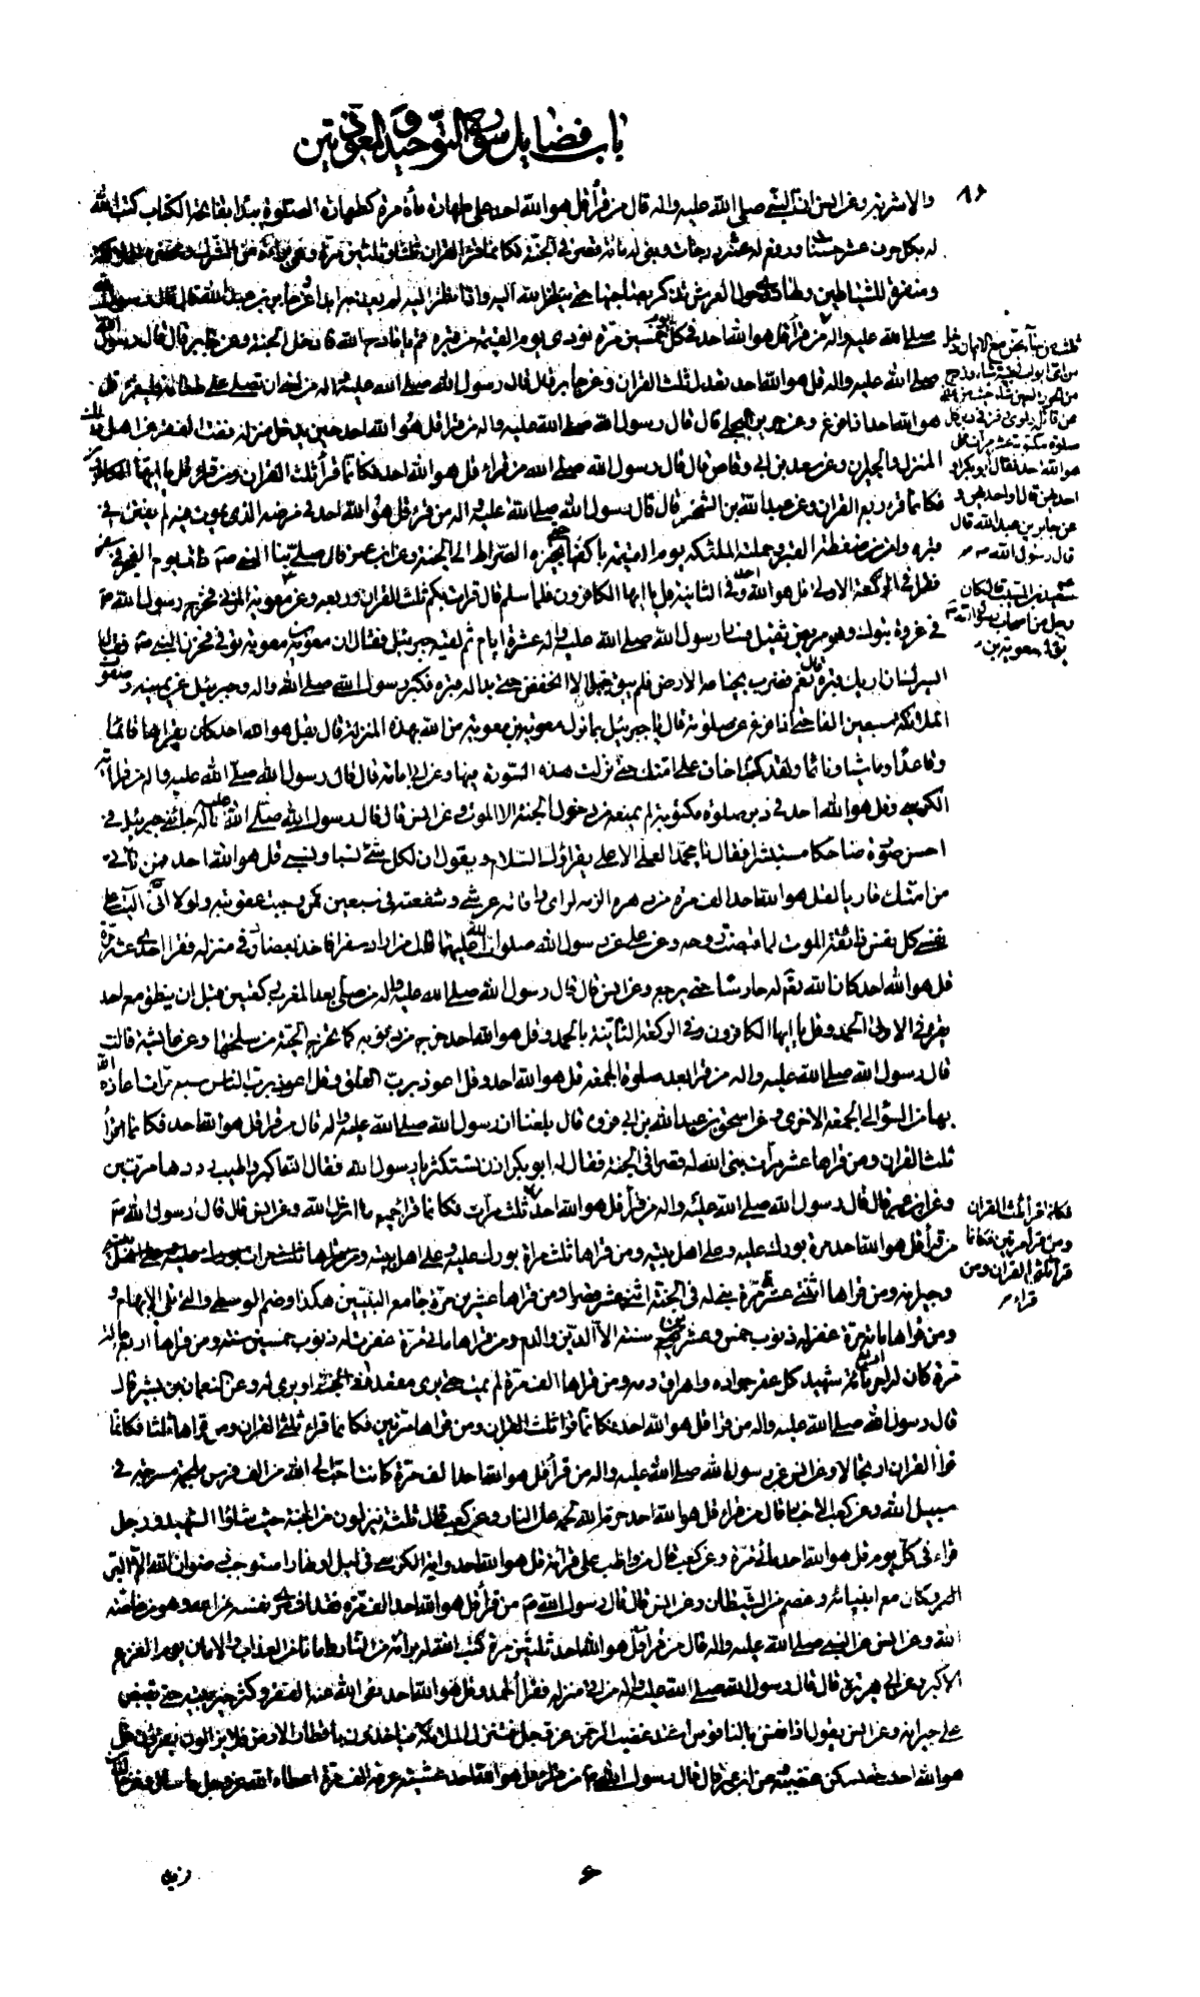 باب فضايل سورة التوحيد و المعوذتين
٨٦
والابشر به وعن انس ان النبي صلى الله عليه واله قال من قرأ قل هو الله احد على طهارة مأة مرة كطهارة الصلوة يبدأ بفاتحة الكتاب كتب الله
له بكل حرف عشر حسنات ورفع له عشر درجات وبنى له مائة قصر في الجنة فكانما قرأ القران ثلثا وثلثين مرة وهي براءة من الشرك
ومنفرة للشياطين ولها دوي حول العرش تذكر بصاحبها حتى ينظر الله اليه واذا نظر اليه لم يعذبه ابدا وعن جابر بن عبد الله قال قال رسول الله
صلى الله عليه واله من قرأ قل هو الله احد في كل يوم خمسين مرة نودي يوم القيمة من قبره قم يا مادح الله فادخل الجنة وعن جابر قال قال رسول الله
صلى الله عليه واله قل هو الله احد تعدل ثلث القران وعن جابر قال قال رسول الله صلى الله عليه واله من نسي ان يسمي على طعامه فليقرء قل
هو الله احد اذا فرغ وعن جرير البجلي قال قال رسول الله صلى الله عليه واله من قرأ قل هو الله احد حين يدخل منزله نفت الفقر عن اهل ذلك
المنزل والجيران وعن سعد بن ابي وقاص قال قال رسول الله صلى الله من قراء قل هو الله احد فكانما قرأ ثلث القران ومن قراء قل يا ايها الكافرون
فكانما قرء ربع القران وعن عبد الله بن الشخير قال قال رسول الله صلى الله عليه واله من قرء قل هو الله احد في مرضه الذي يموت فيه لم يفتن في
قبره وامن من ضغطة القبر وحملته الملئكة يوم القيمة باكفها حتى تجيزه الصراط الى الجنة وعن ابن عمر قال صلى بنا النبي صم ذات يوم الفجر في سفر
فقرا في الركعة الاولى قل هو الله احد وفي الثانية قل يا ايها الكافرون فلما سلم قال قرات بكم ثلث القران وربعه وعن معوية المزني خرج رسول الله صم
في غزوة تبوك وهو مريض ثقيل فسار رسول الله صلى الله عليه واله عشرة ايام ثم لقيه جبرئيل فقال ان معوية بن معوية توفي فحزن النبي صم فقال
ايسرك ان اريك قبره قال نعم فضرب بجناحه الارض فلم يبق جبل الا انخفض حتى بدا له قبره فكبر رسول الله صلى الله واله وجبرئيل عن يمينه وصفوف
الملائكة سبعين الفا حتى اذا فرغ عن صلوته قال يا جبرئيل بما نزل معوية بن معوية من الله بهذه المنزلة قال بقل هو الله احد كان يقراها قائما
وقاعدا وماشيا ونائما ولقد كنت اخاف على امتك حتى نزلت هذه السورة فيها وعن ابي امامة قال قال رسول الله صلى الله عليه واله من قرأ اية
الكرسي وقل هو الله احد في دبر صلوة مكتوبة لم يمنعه من دخول الجنة الا الموت وعن انس قال قال رسول الله صلى الله عليه واله جائني جبرئيل في
احسن صورة ضاحكا مستبشرا فقال يا محمد العلي الاعلى يقرؤك السلام ويقول ان لكل شئ نسبا ونسبي قل هو الله احد فمن اتاني
من امتك قاريا لقل هو الله احد الف مرة من دهره الزمه لواي واقامة عرشي وشفعته في سبعين ممن وجبت عقوبته ولولا اني اليت على
نفسي كل نفس ذائقة الموت لما قبضت روحه وعن علي عن رسول الله صلوات الله عليهما قال من اراد سفرا فاخذ بعضادتي منزله فقرا احدى عشرة مرة
قل هو الله احد كان الله تعم له حارسا حتى يرجع وعن انس قال قال رسول الله صلى الله عليه واله من صلى بعد المغرب ركعتين قبل ان ينطق مع احد
يقرء في الاولى الحمد وقل يا ايها الكافرون وفي الركعة الثانية بالحمد وقل هو الله احد خرج من ذنوبه كما تخرج الحية من سلخها وعن عائشة قالت
قال رسول الله صلى الله عليه واله من قرا بعد صلوة الجمعة قل هو الله احد وقل اعوذ برب الفلق وقل اعوذ برب الناس سبع مرات اعاذه الله
بها من السوء الى الجمعة الاخرى وعن اسحق بن عبد الله بن ابي فروة قال بلغنا ان رسول الله صلى الله عليه واله قال من قرا قل هو الله احد فكانما قرأ
ثلث القران ومن قراها عشر مرات بنى الله له قصرا في الجنة فقال له ابو بكر اذن نستكثر يا رسول الله فقال الله اكبر واطيب رددها مرتين
وعن ابن عمر قال قال رسول الله صلى الله عليه واله من قرأ قل هو الله احد ثلث مرات فكانما قرا جميع ما انزل الله وعن انس قال قال رسول الله صم
من قرأ قل هو الله احد مرة بورك عليه وعلى اهل بيته ومن قراها ثلث مرة بورك عليه وعلى اهل بيته
وجيرانه ومن قراها اثنتي عشرة مرة بنى له في الجنة اثنى عشر قصرا ومن قراها عشرين مرة جامع النبيين هكذا وضم الوسطى والتي تلي الابهام و
ومن قراها مائة مرة غفر له ذنوب خمس وعشرين سنة الا الدين والدم ومن قراها ماتي مرة غفرت له ذنوب خمسين سنة ومن قراها اربع مائة
مرة كان له اجر اربع مائة شهيد كل عقر جواده واهراق دمه ومن قراها الف مرة لم يمت حتى يرى مقعده في الجنة او يرى له وعن النعمان بن بشير قال
قال رسول الله صلى الله عليه واله من قرا قل هو الله احد فكانما قرا ثلث القران ومن قراها مرتين فكانما قراء ثلثي القران ومن قراها ثلثا فكانما
قرأ القران ارتجالا وعن انس عن رسول الله صلى الله عليه واله من قرأ قل هو الله احد الف مرة كانت احب الى الله من الف فرس ملجمة مسرجة في
سبيل الله وعن كعب الاحبار قال من قراء قل هو الله احد حرم الله لحمه على النار وعن كعب قال ثلثة ينزلون من الجنة حيث شاؤا الشهيد ورجل
قراء في كل يوم قل هو الله احد مائتي مرة وعن كعب قال من واظب على قرائة قل هو الله احد واية الكرسي في ليل او نهار استوجب رضوان الله الاكبر
وكان مع انبيائه وعصم من الشيطان وعن انس قال قال رسول الله صم من قرأ قل هو الله احد الف مرة فقد اشترى نفسه من الله وهو من خاصة
الله وعن انس عن النبي صلى الله عليه واله قال من قرأ قل هو الله احد ثلثين مرة كتب الله له براءة من النار وامانا من العذاب والامان يوم الفزع
الاكبر وعن ابي هريرة قال قال رسول الله صلى الله عليه واله من اتى منزله فقرأ الحمد وقل هو الله احد نفى الله عنه الفقر وكثر خير بيته حتى يفيض
على جيرانه وعن انس يقول اذا نقس بالناقوس اشتد غضب الرحمن عز وجل فتنزل الملائكة فياخذون باقطار الارض فلا يزالون يقرؤن قل
هو الله احد حتى يسكن غضبه وعن ابن عمر قال قال رسول الله صم من قرا قل هو الله احد عشية عرفة الف مرة اعطاه الله عز وجل ما سال
من اي ابواب الجنة شاء وزوج
من الحور العين حيث شاء
صلوة مكتوبة عشر مرات قل
هو الله احد فقال ابو بكر او
احديهن قال او احديهن و
عن جابر بن عبد الله قال
قال رسول الله صم
سعيد بن المسيب قال كان
رجل من اصحاب رسول الله صم
يقال معوية بن
فكانما قرأ ثلث القران
ومن قرأ مرتين فكانما
قرأ ثلثي القران ومن
قراء